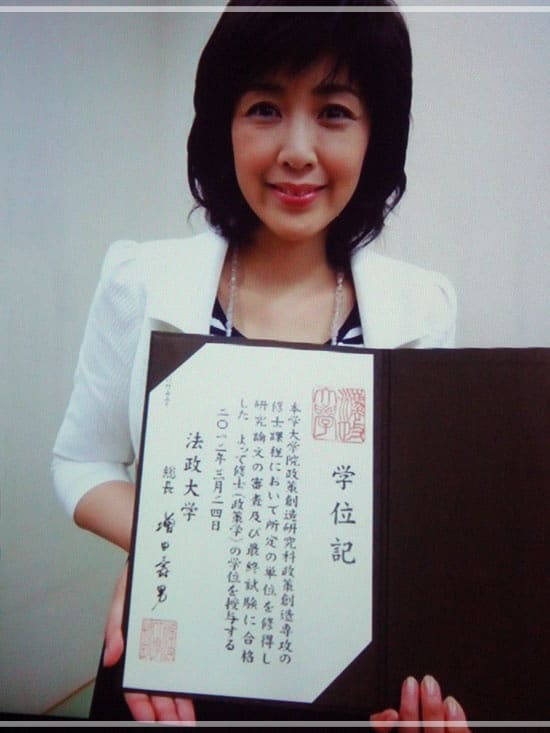 学位記
本学大学院政策創造研究科政策創造専攻の
修士課程において所定の単位を修得し
研究論文の審査及び最終試験に合格
した よって修士(政策学)の学位を授与する
二〇一二年三月二四日
法政大学
総長 増田壽男